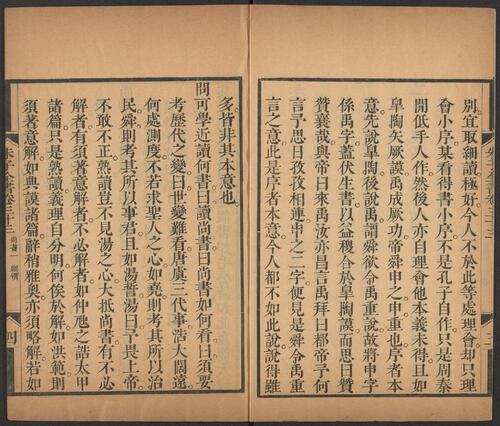 別宜取細讀極好今人不於此等處理會却只理
會小序某看得書小序不是孔子自作只是周秦
間低手人作然後人亦自理會他本義未得且如
皐陶矢厥謨禹成厥功帝舜申之申重也序者本
意先說皐陶後說禹謂舜欲令禹重說故將申字
係禹字蓋伏生書以益稷合於皐陶謨而思曰贊
贊襄哉與帝曰來禹汝亦昌言禹拜曰都帝予何
言予思日孜孜相連申之二字便見是舜令禹重
言之意此是序者本意今人都不如此說說得雖
多皆非其本意也
問可學近讀何書曰讀尚書曰尚書如何看曰須要
考歷代之變曰世變難看唐虞三代事浩大闊遠
何處測度不若求聖人之心如堯則考其所以治
民舜則考其所以事君且如湯誓湯曰予畏上帝
不敢不正熟讀豈不見湯之心大抵尚書有不必
解者有須著意解者不必解者如仲虺之誥太甲
諸篇只是熟讀義理自分明何俟於解如洪範則
須著意解如典謨諸篇辭稍雅奧亦須略解若如
朱子全書卷三十三
尚書一
綱領
四